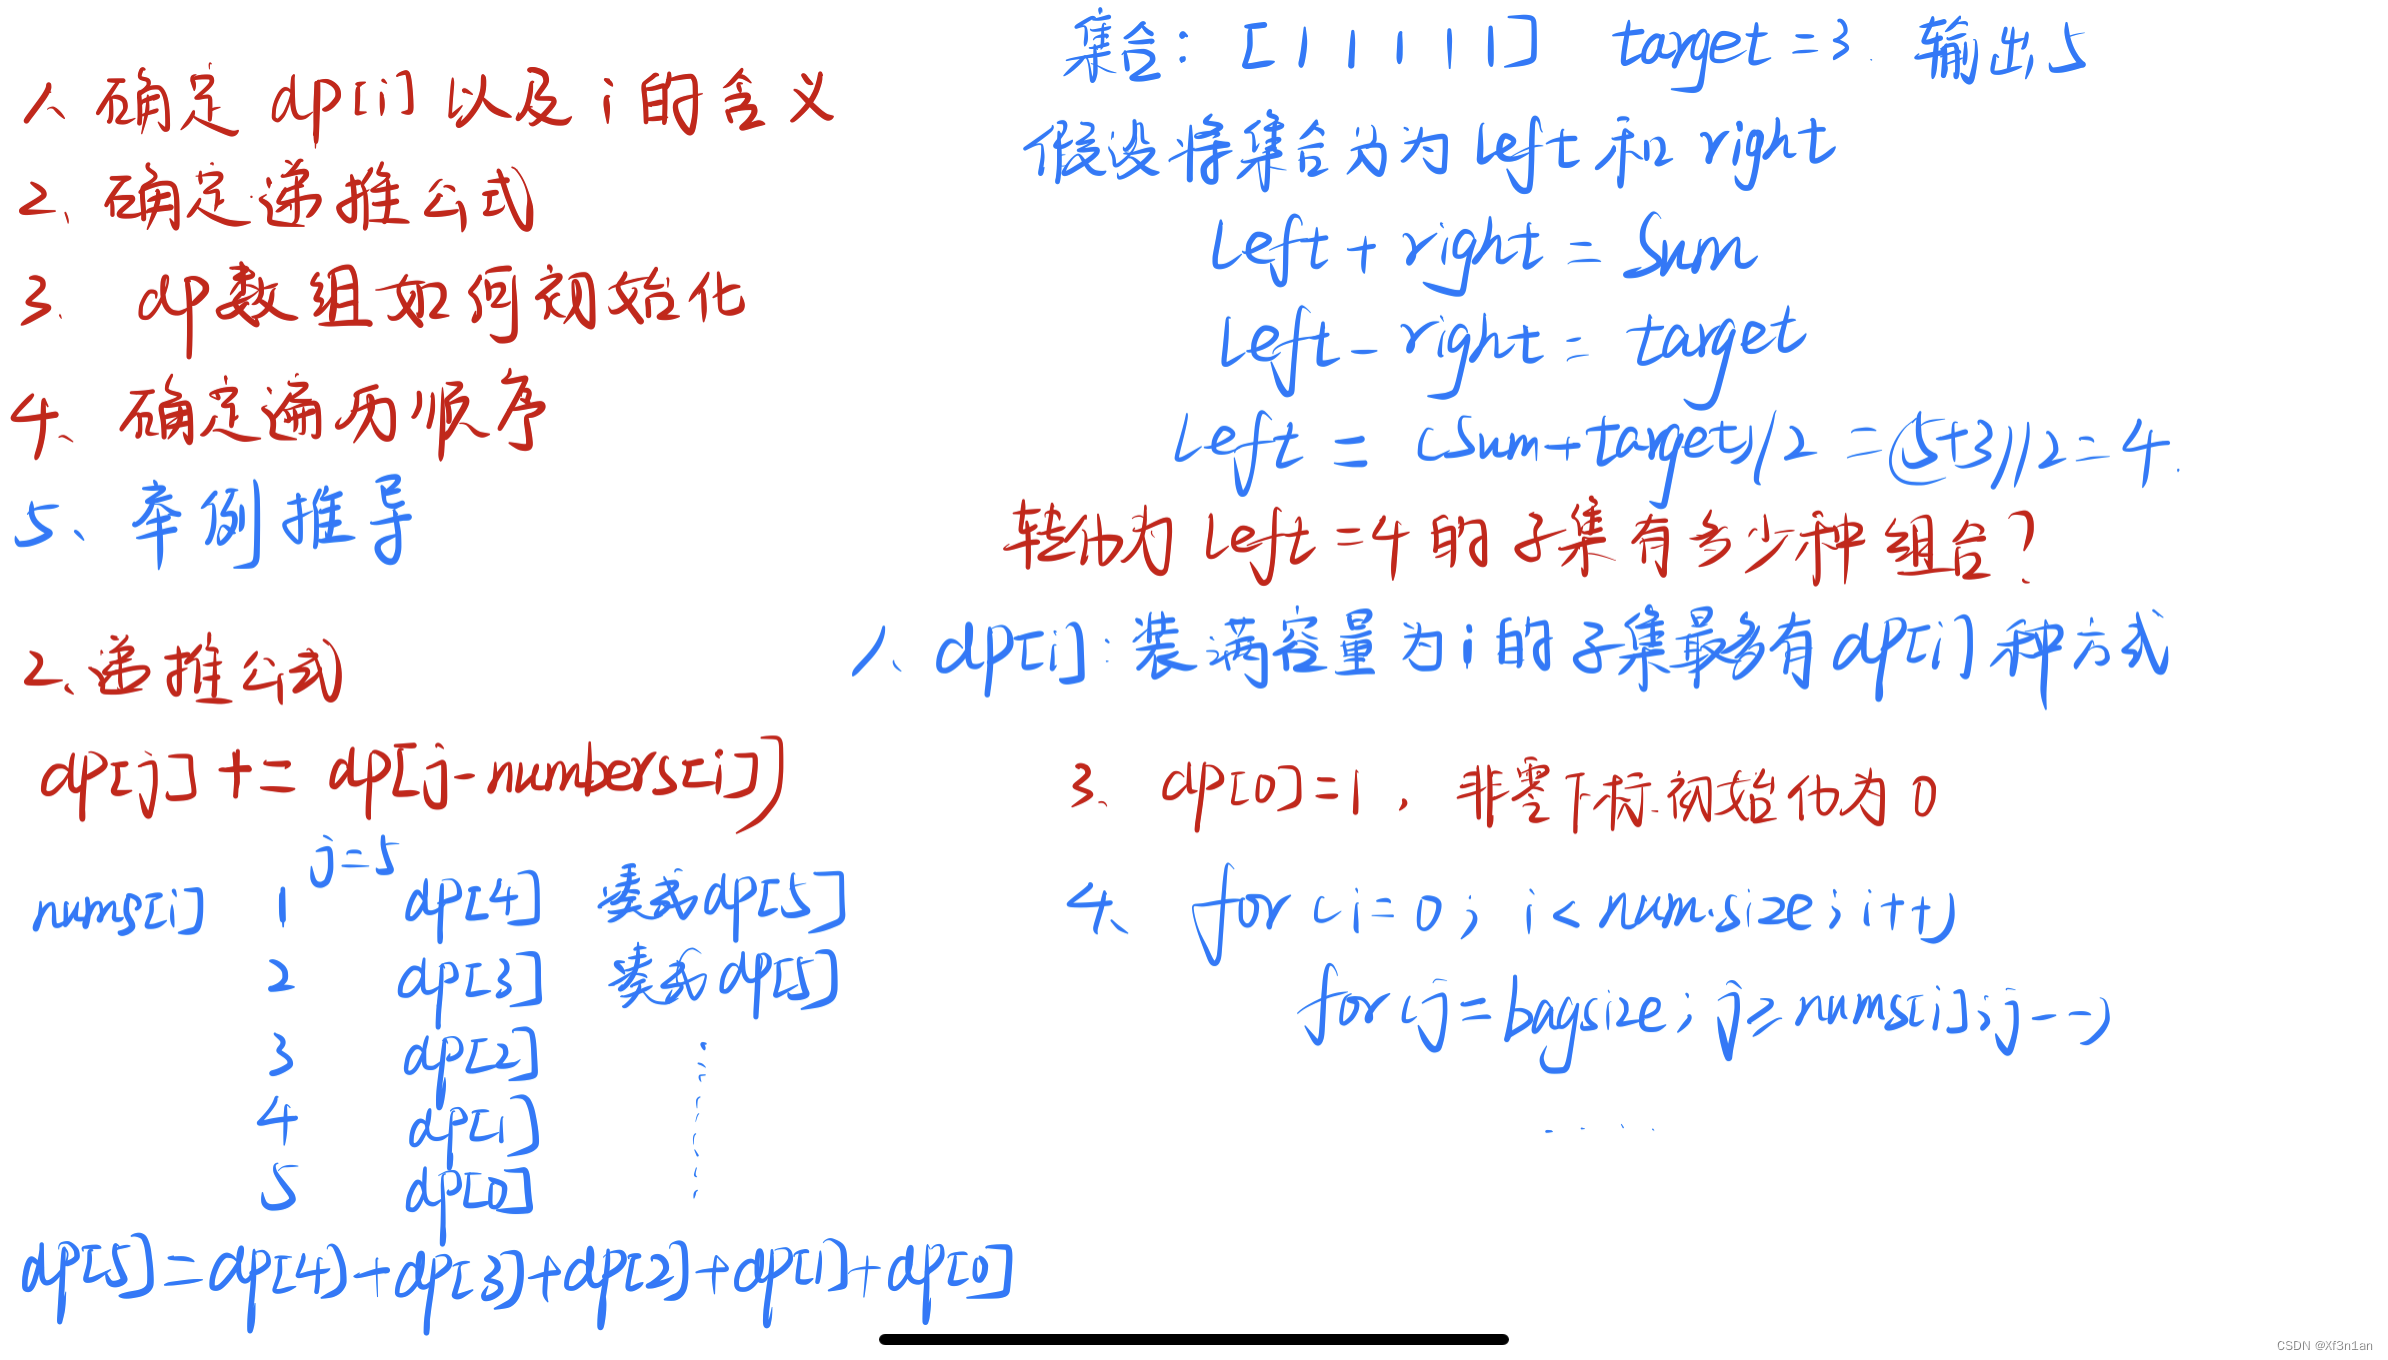 1、确定 dp[i] 以及 i 的含义
2、确定递推公式
3、dp数组如何初始化
4、确定遍历顺序
5、举例推导
集合：[1 1 1 1 1] target=3. 输出5
假设将集合分为left和right
left+right=Sum
left-right=target
left=(Sum+target)/2=(5+3)/2=4.
转化为left=4的子集有多少种组合？
1、dp[i]：装满容量为i的子集最多有dp[i]种方式
2、递推公式
dp[j]+=dp[j-numbers[i]]
j=5
nums[i] 1 dp[4] 凑成dp[5]
2 dp[3] 凑成dp[5]
3 dp[2]
4 dp[1]
5 dp[0]
dp[5]=dp[4]+dp[3]+dp[2]+dp[1]+dp[0]
3、dp[0]=1，非零下标初始化为0
4、for(i=0;i<num.size;i++)
for(j=bagsize;j≥nums[i];j--)
....
CSDN @Xf3n1an